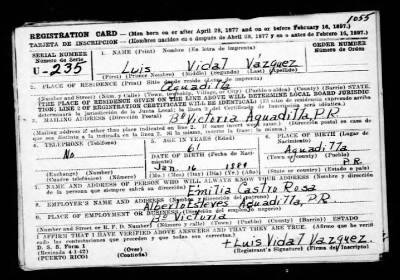 1055
REGISTRATION CARD—(Men born on or after April 28, 1877 and on or before February 16, 1897.)
TARJETA DE INSCRIPCION—(Hombres nacidos en o después de Abril 28, 1877 y en o antes de Febrero 16, 1897.)
SERIAL NUMBER
Número de Serie
1. NAME (Print) Nombre (En letra de imprenta)
ORDER NUMBER
Número de Orden
U-235
Luis Vidal Vazquez
(First) (Primer Nombre) (Middle) (Segundo) (Last) (Apellido)
2. PLACE OF RESIDENCE (Print) Sitio donde reside (Letra de imprenta)
Aguadilla
(Number and Street) (Núm. y Calle) (Town, township, Village, or City) (Pueblo o aldea) (County) (Barrio) STATE
THE PLACE OF RESIDENCE GIVEN ON THE LINE ABOVE WILL DETERMINE LOCAL BOARD JURISDICTION; LINE 2 OF REGISTRATION CERTIFICATE WILL BE IDENTICAL)
3. MAILING ADDRESS (Dirección Postal)
Bo Victoria Aguadilla, P.R.
(Mailing address if other than place indicated on line 2.
4. TELEPHONE (Teléfono)
No
(Exchange) (Number)
(Cuadro telefónico) (Número)
5. AGE IN YEARS (Edad)
61
DATE OF BIRTH (Fecha de Nacimiento)
Jan.
(Mo.) (Day) (Yr.) (Mes) (Día) (Año)
6. PLACE OF BIRTH (Lugar de Nacimiento)
Aguadilla
(Town or county) (Pueblo)
P.R.
(State or country) (Estado o país)
7. NAME AND ADDRESS OF PERSON WHO WILL ALWAYS KNOW YOUR ADDRESS
Emilia Castro Rosa
8. EMPLOYER'S NAME AND ADDRESS
Alberto Esteves Aguadilla, P.R.
9. PLACE OF EMPLOYMENT OR BUSINESS
Bo Victoria
(Number and Street or R. F. D. Number) (Número y Calle) (Town) (Pueblo) (County) (Barrio) (ESTADO)
I AFFIRM THAT I HAVE VERIFIED ABOVE ANSWERS AND THAT THEY ARE TRUE.
D. S. S. Form 1
(Revised 4-1-42)
(PUERTO RICO)
(Over)
(Continúa)
+ Luis Vidal Vazquez
(Registrant's Signature) (Firma del Inscripto)